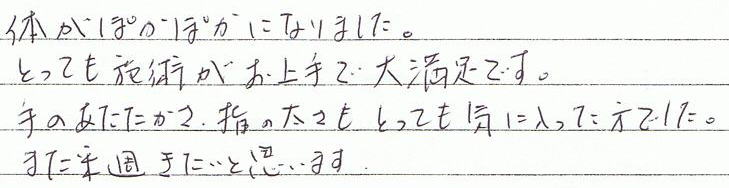 体がぽかぽかになりました。
とっても施術がお上手で大満足です。
手のあたたかさ、指の太さもとっても気に入った方でした。
また来週きたいと思います